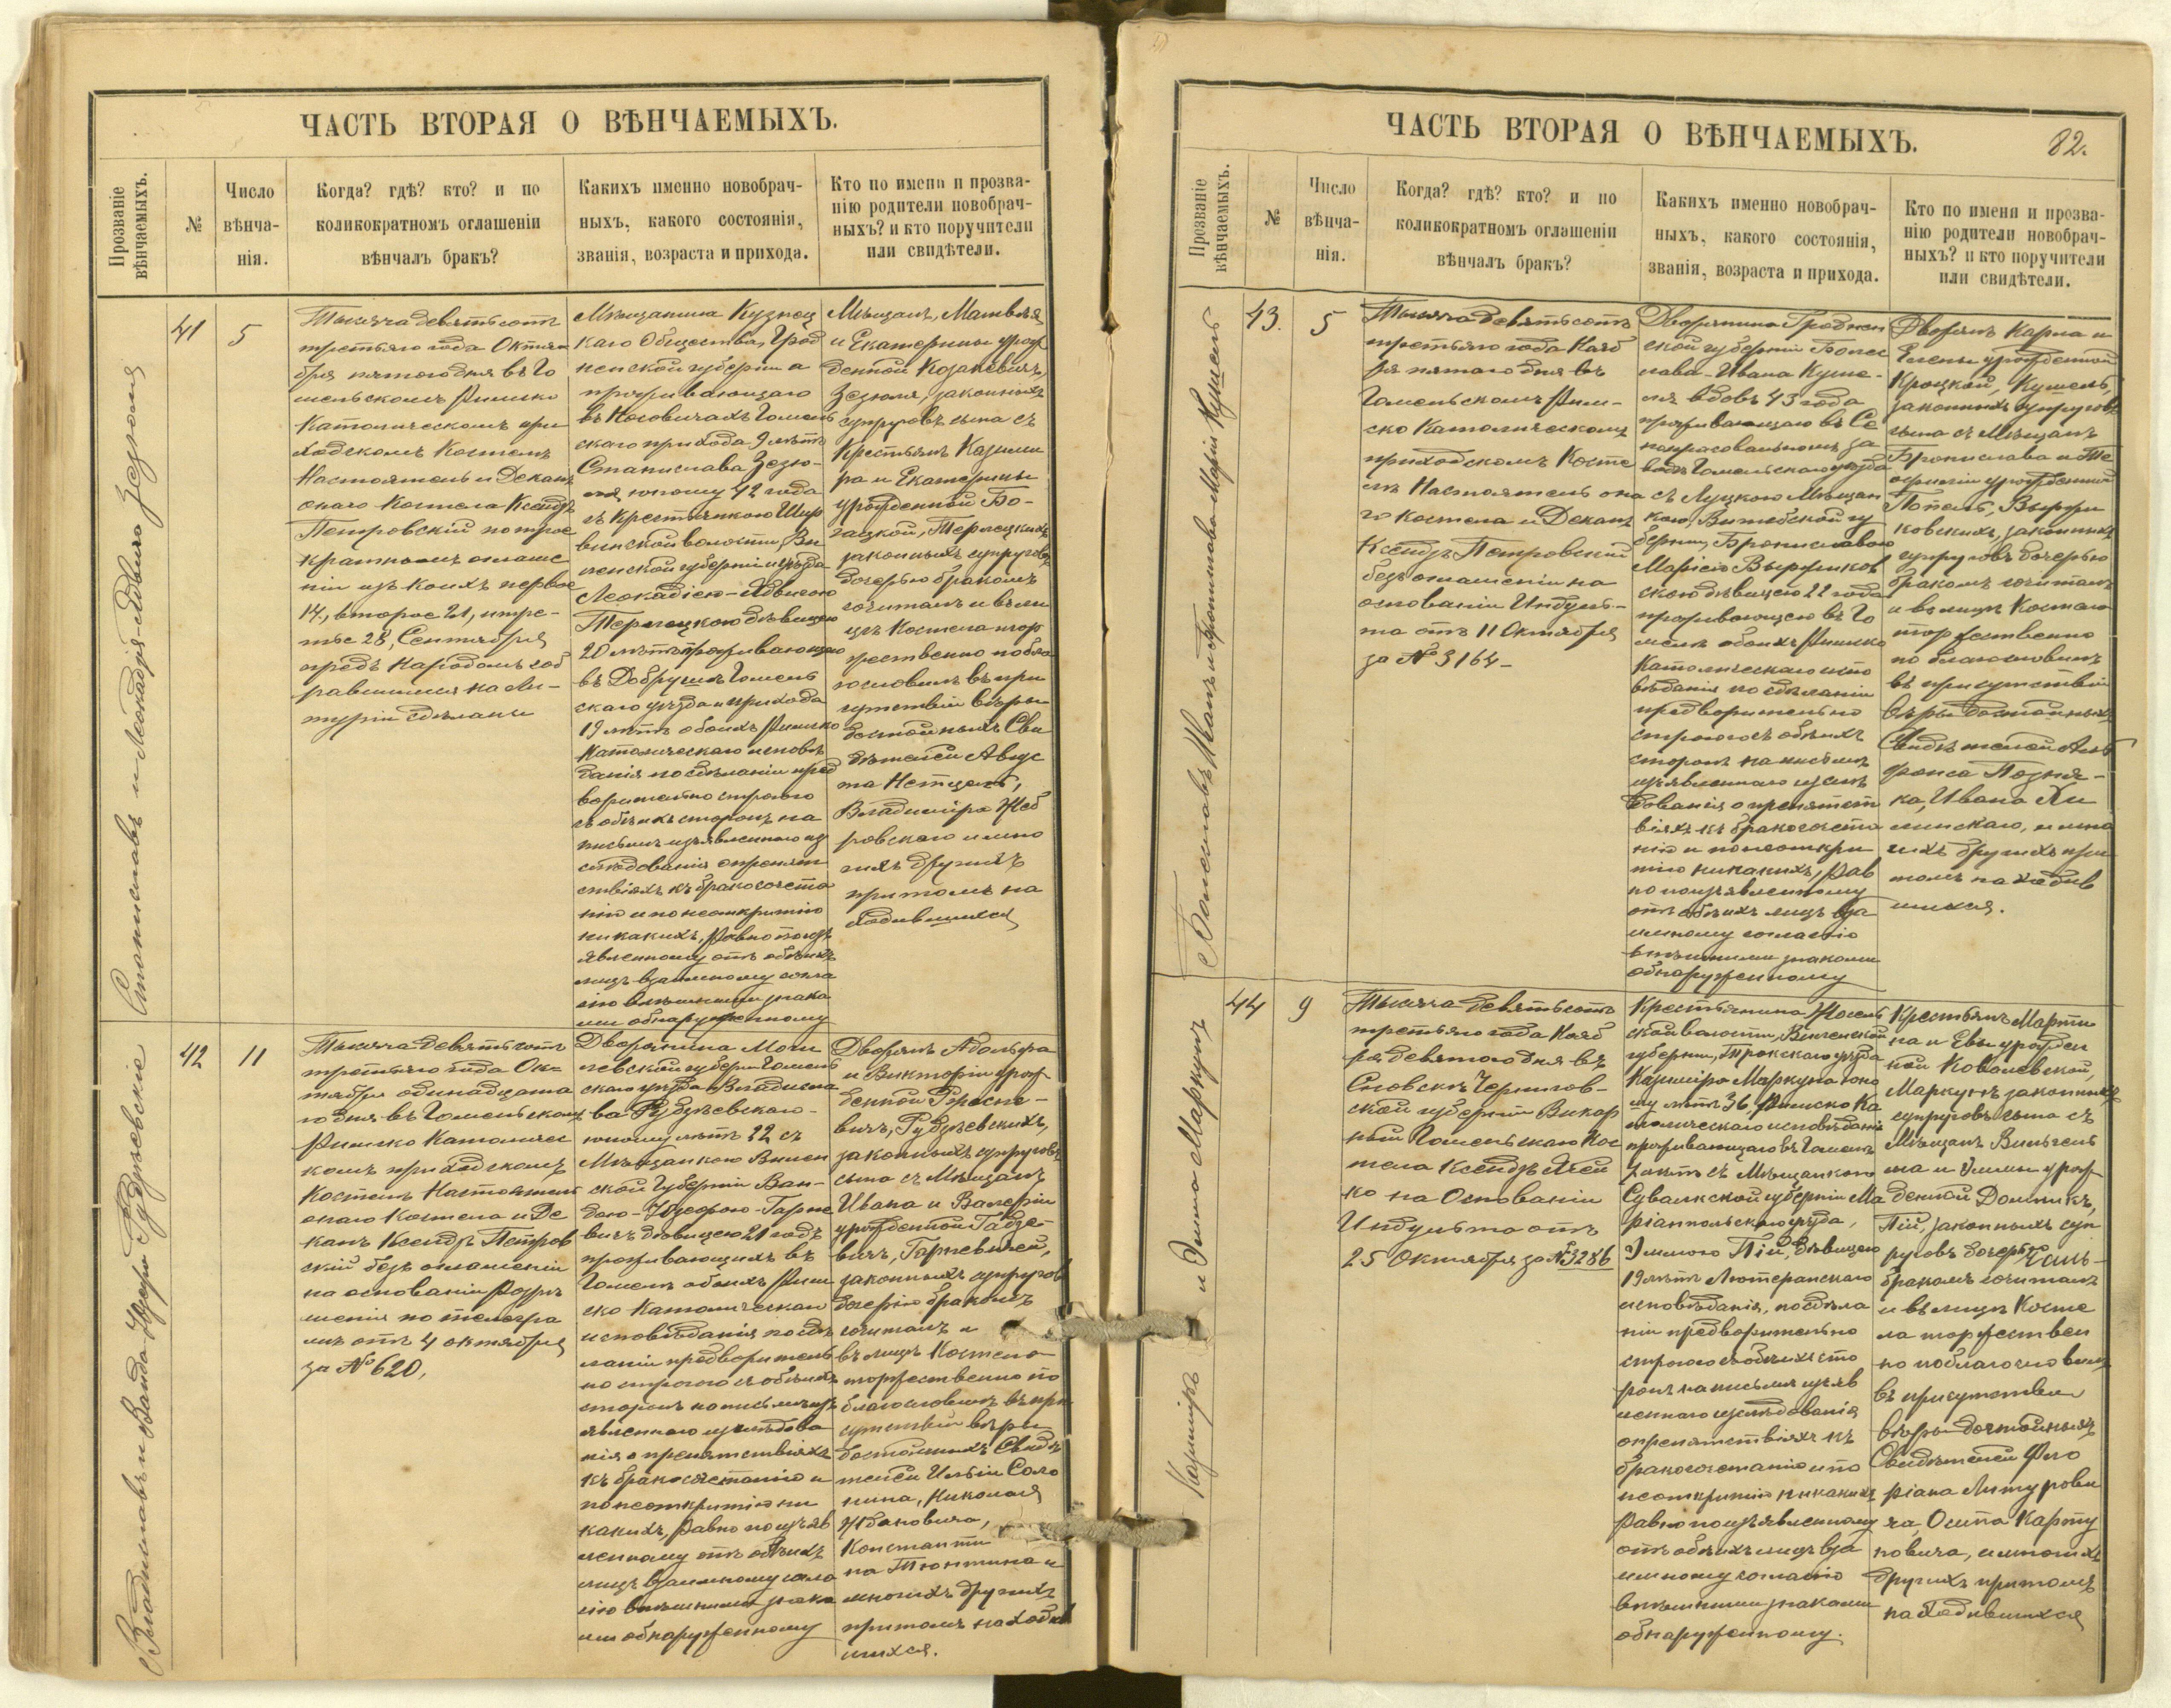 ЧАСТЬ ВТОРАЯ О ВѢНЧАЕМЫХЪ.
Прозваніе
вѣнчаемыхъ.
№
Число
вѣнча-
нія.
Когда? гдѣ? кто? и по
коликократномъ оглашеніи
вѣнчалъ бракъ?
Какихъ именно новобрач-
ныхъ, какого состоянія,
званія, возраста и прихода.
Кто по имени и прозва-
нію родители новобрач-
ныхъ? и кто поручители
или свидѣтели.
Станиславъ и Леокадія Ядвига Зезюля
41
5
Тысяча девятьсотъ
третьяго года Октя
бря пятаго дня въ Го
мельскомъ Римско
Католическомъ при
ходскомъ Костелѣ
Настоятель и Деканъ
онаго Костела Ксендзъ
Петровскій по трое
кратномъ оглаше
ніи изъ коихъ первое
14, второе 21, и тре-
тье 28, Сентября
предъ народомъ соб
равшимся на Ли-
тургіи сдѣланы
Мѣщанина Кузнец
каго Общества, Грод
ненской губерніи а
проживающаго
въ Носовичахъ Гомель
скаго прихода 9 лѣтъ
Станислава Зезю-
ля юношу 42 года
съ крестьянкою Шир
винской волости, Ви
ленской губерніи и уѣзда
Леокадіею-Ядвигою
Терлецкою дѣвицею
20 лѣтъ проживающею
въ Добрушѣ Гомель
скаго уѣзда и прихода
19 лѣтъ обоихъ Римско
Католическаго исповѣ
данія по сдѣланіи пред
варительно строгаго
съ обѣихъ сторонъ на
письмѣ изъявленнаго из
слѣдованія о препят
ствіяхъ къ бракосочета
нію и по неоткрытію
никакихъ, равно по изъ
явленному отъ обѣихъ
лицъ взаимному согла
сію внѣшними знака
ми обнаруженному
Мѣщанъ, Матвѣя
и Екатерины урож
денной Козакевичъ,
Зезюля, законныхъ
супруговъ сына съ
Крестьянъ Казими
ра и Екатерины
урожденной Бо-
гацкой, Терлецкихъ
законныхъ супруговъ
дочерью бракомъ
сочиталъ и въ ли
цѣ Костела тор
жественно побла
гословилъ въ при
сутствіи вѣры
достойныхъ Сви
дѣтелей Авгус
та
Владиміра Жеб
ровскаго и мно
гихъ другихъ
притомъ на
ходившихся
Владиславъ и Ванда Юзефа Рудзѣевскіе
42
11
Тысяча девятьсотъ
третьяго года Ок-
тября одинадцата
го дня въ Гомельскомъ
Римско Католичес
комъ приходскомъ
Костелѣ Настоятель
онаго Костела и Де
канъ Ксендзъ Петров
скій безъ оглашеній
на основаніи Разрѣ
шенія по телегра
мѣ отъ 4 октября
за № 620,
Дворянина Моги
левской губерніи Гомель
скаго уѣзда Владисла
ва Рудзѣевскаго-
юношу лѣтъ 22 съ
Мѣщанкою Вилен
ской Губерніи Ван-
дою-Юзефою-Гарне
вичъ дѣвицею 21 годъ
проживающихъ въ
Гомелѣ обоихъ Рим
ско Католическаго
исповѣданія по сдѣ
ланіи предваритель
но строгаго съ обѣихъ
сторонъ на письмѣ изъ
явленнаго изслѣдова
нія о препятствіяхъ
къ бракосочетанію и
по неоткрытію ни
какихъ, равно по изъяв
ленному отъ обѣихъ
лицъ взаимному согла
сію внѣшними знака
ми обнаруженному
Дворянъ Адольфа
и Викторіи урож
денной
вичъ, Рудзѣевскихъ,
законныхъ супруговъ
сына съ Мѣщанъ
Ивана и Валеріи
урожденной Гадзе-
вичъ, Гарневичей,
законныхъ супругов
дочерью бракомъ
сочиталъ и
въ лицѣ Костела
торжественно по
благословилъ въ при
сутствіи вѣры
достойныхъ Свидѣ
телей Ильи Соло
нина, Николая
Ждановича,
Константи
на Тюнтина и
многихъ другихъ
притомъ находив
шихся.
ЧАСТЬ ВТОРАЯ О ВѢНЧАЕМЫХЪ.
82.
Прозваніе
вѣнчаемыхъ.
№
Число
вѣнча-
нія.
Когда? гдѣ? кто? и по
коликократномъ оглашеніи
вѣнчалъ бракъ?
Какихъ именно новобрач-
ныхъ, какого состоянія,
званія, возраста и прихода.
Кто по имени и прозва-
нію родители новобрач-
ныхъ? и кто поручители
или свидѣтели.
Болеславъ Иванъ и Бронислава Марія Кушель
43.
5
Тысяча девятьсотъ
третьяго года Нояб
ря пятаго дня въ
Гомельскомъ Рим-
ско Католическомъ
приходскомъ Косте
лѣ Настоятель она
го Костела и Деканъ
Ксендзъ Петровскій
безъ оглашеній на
основаніи Индуль-
та отъ 11 Октября
за № 3164-
Дворянина Гроднен
ской губерніи Болес
лава-Ивана Куше-
ля вдовъ 43 года
проживающаго въ Се
за
водѣ Гомельскаго уѣзда
съ Луцкою Мѣщан
кою, Витебской гу
берніи, Брониславою
Маріею Выржиков
скою дѣвицею 22 года
проживающею въ Го
мелѣ обоихъ Римско
Католическаго испо
вѣданія по сдѣланіи
предварительно
строгаго съ обѣихъ
сторонъ на письмѣ
изъявленнаго изслѣ
дованія о препятст
віяхъ къ бракосочета
нію и по неоткры
тію никакихъ, рав
но по изъявленному
отъ обѣихъ лицъ вза
имному согласію
внѣшними знаками
обнаруженному
Дворянъ Карла и
Елены урожденной
Кроцкой, Кушель,
законныхъ супруговъ
сына съ Мѣщанъ
Бронислава и Те
офиліи урожденной
Попель, Выржи
ковскихъ, законныхъ
супруговъ дочерью
бракомъ сочиталъ
и въ лицѣ Костела
торжественно
по благословилъ
въ присутствіи
вѣры достойныхъ
Свидѣтелей Аль
фонса Позня-
ка, Ивана Хи
линскаго, и мно
гихъ другихъ при
томъ находив
шихся.
Казиміръ и Эмма Маркунъ
44
9
Тысяча девятьсотъ
третьяго года Нояб
ря девятаго дня въ
Сновскѣ Чернигов-
ской губерніи Викар
ный Гомельскаго Кос
тела Ксендзъ
на Основаніи
Индульта отъ
25 Октября за № 3286
Крестьянина Жосль
ской волости, Виленской
губерніи, Трокскаго уѣзда
Казиміра Маркуна юно
шу лѣтъ 36 Римско Ка
толическаго исповѣданія
проживающаго въ Гомелѣ
2 лѣтъ съ Мѣщанкою
Сувалкской губерніи Ма
ріампольскаго уѣзда,
Эммою Пій, дѣвицею
19 лѣтъ Лютеранскаго
исповѣданія, по сдѣла
ніи предварительно
строгаго съ обѣихъ сто
ронъ на письмѣ изъяв
леннаго изслѣдованія
о препятствіяхъ къ
бракосочетанію и по
неоткрытію никакихъ
равно по изъявленному
отъ обѣихъ лицъ вза
имному согласію
внѣшними знаками
обнаруженному.
Крестьянъ Марти
на и Евы урожден
ной Ковалевской,
Маркунъ законныхъ
супруговъ сына съ
Мѣщанъ Вильгель
ма и Эммы урож
денной Домникъ,
Пій, законныхъ суп
руговъ дочерью
бракомъ сочиталъ
и въ лицѣ Косте
ла торжествен
но поблагословилъ
въ присутствіи
вѣры достойныхъ
Свидѣтелей Фло
ріана Литурови
ча, Осипа Карпу
новича, и многихъ
другихъ притомъ
находившихся